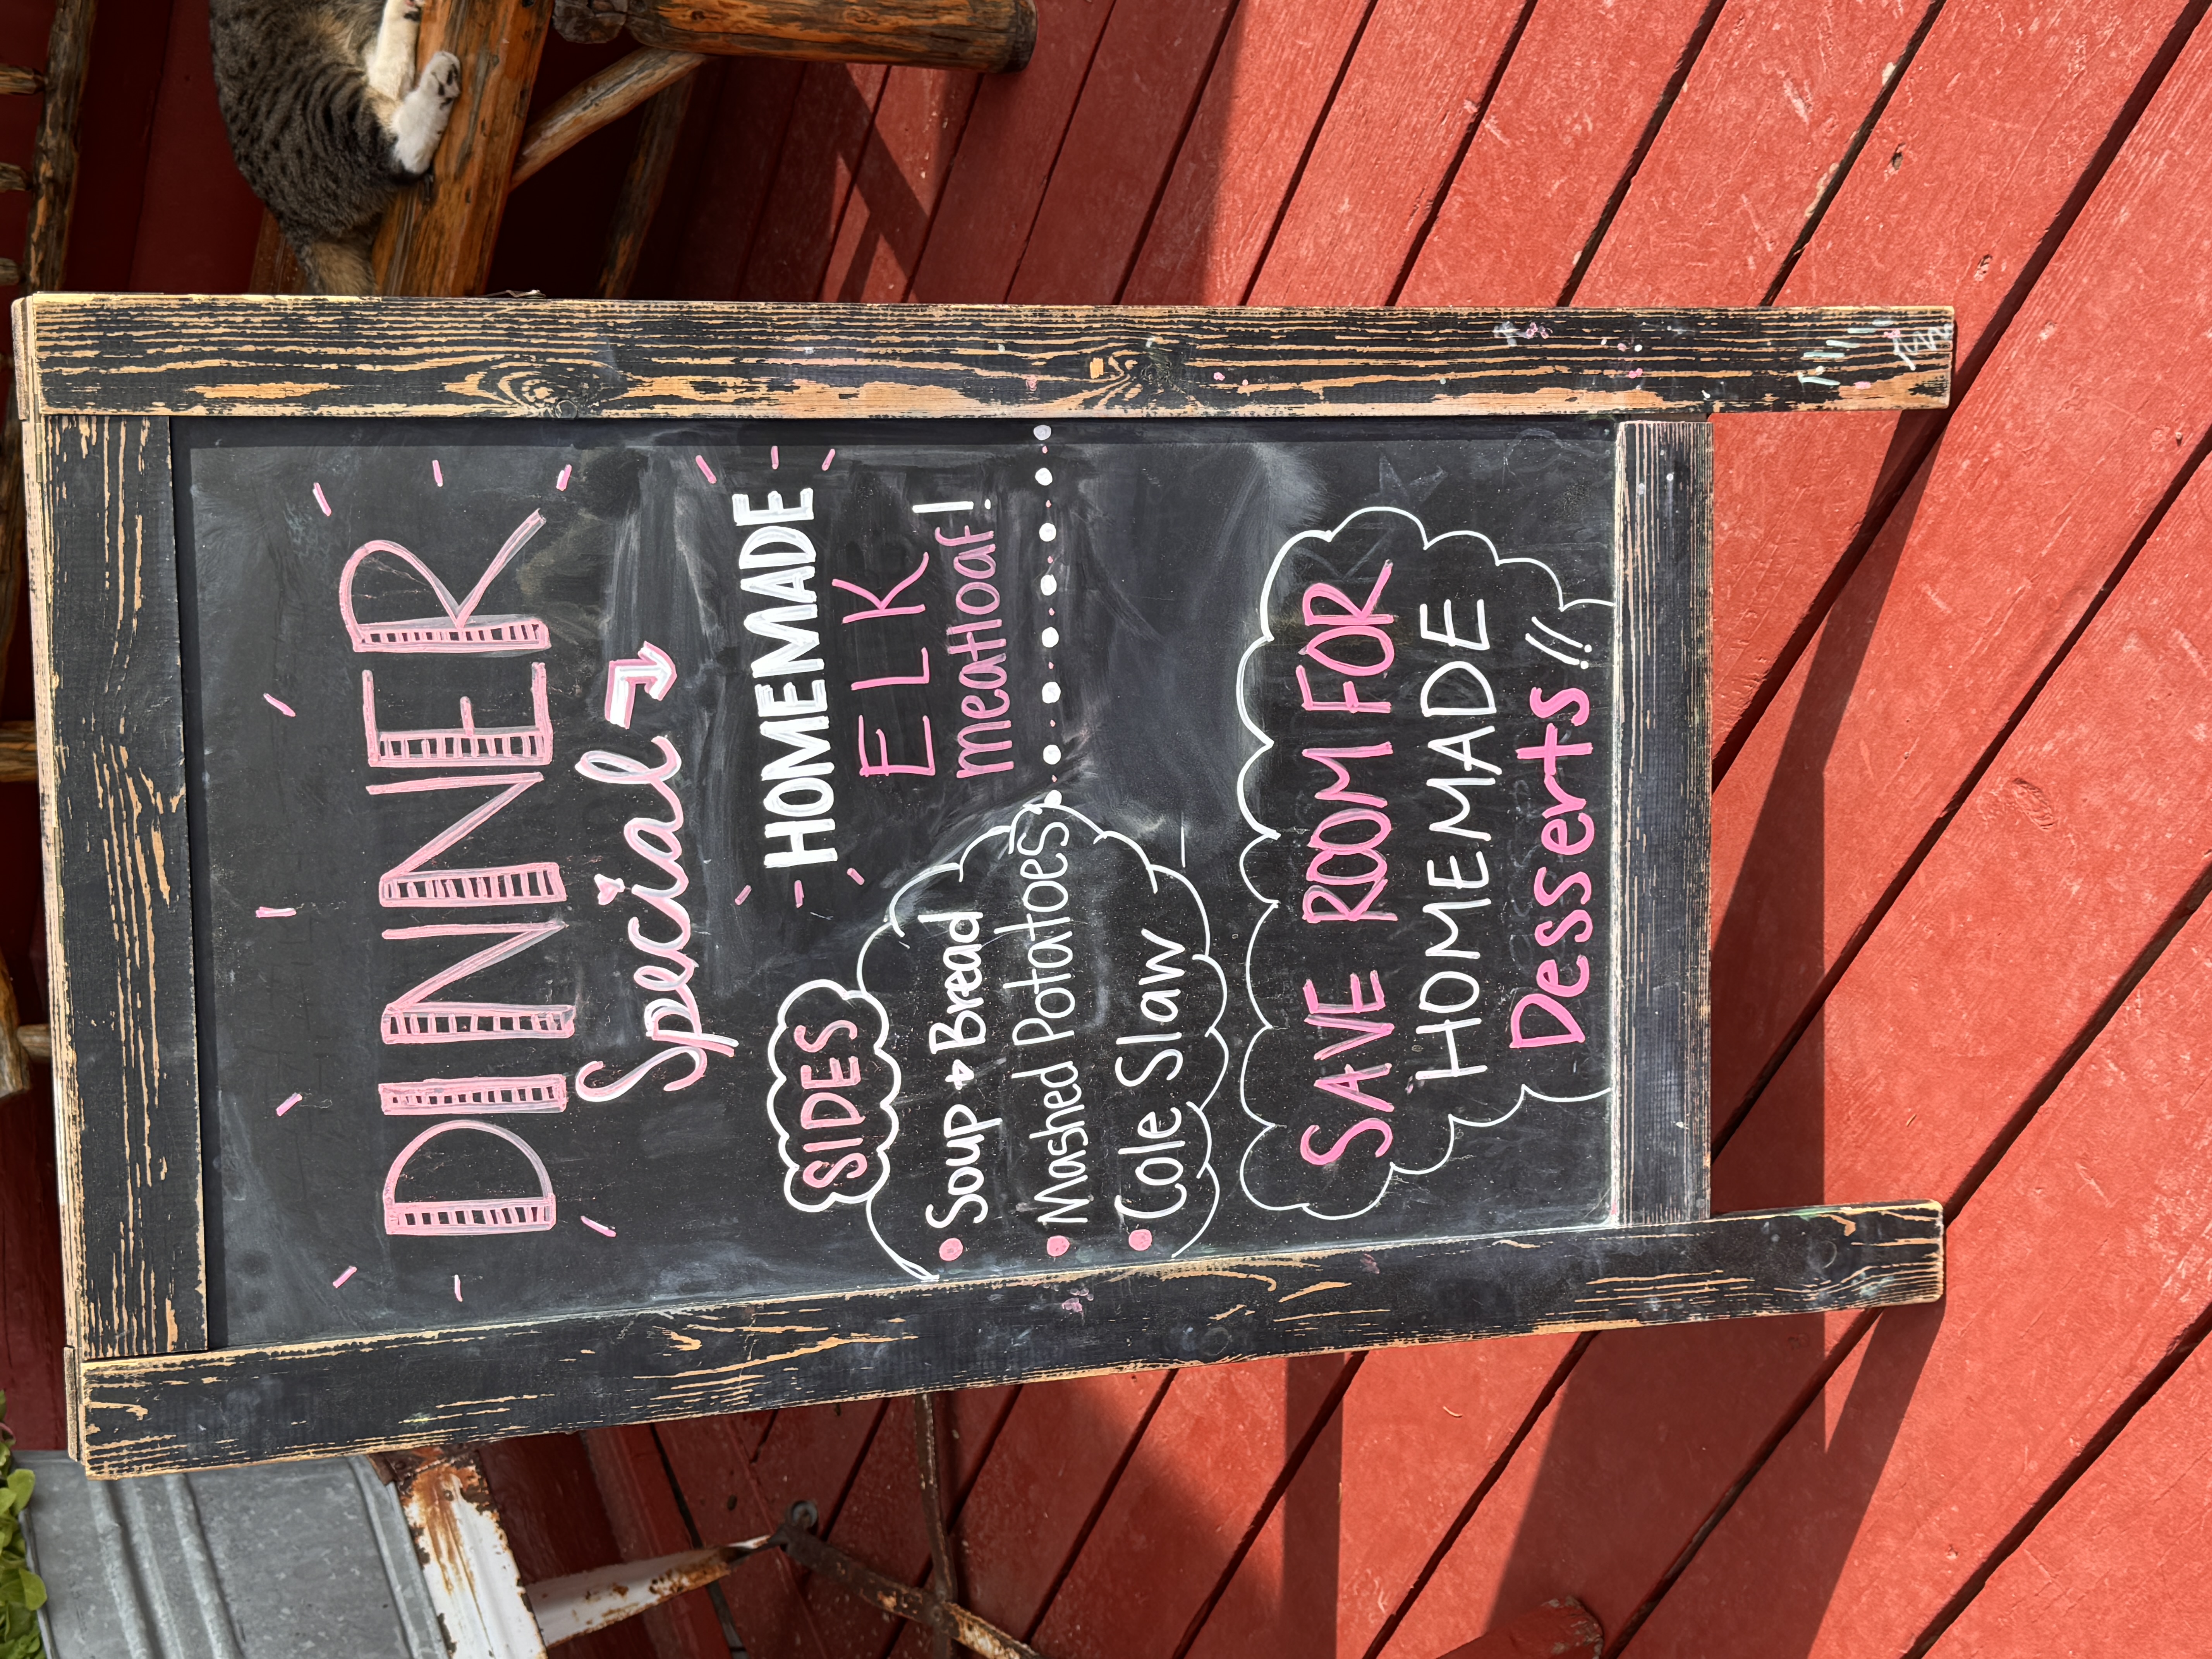 DINNER
Special
HOMEMADE
ELK
meatloaf!
SIDES
Soup + Bread
Mashed Potatoes
Cole Slaw
SAVE ROOM FOR
HOMEMADE
Desserts!!